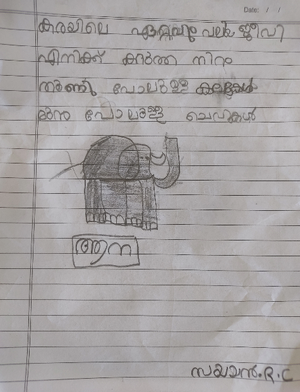 കരയിലെ ഏറ്റവും വലിയ ജീവി
എനിക്ക് കറുത്ത നിറം
തൂണു പോലുള്ള കാലുകൾ
മുറം പോലുള്ള ചെവികൾ
ആന
സയാൻ.R.C
Date: / /